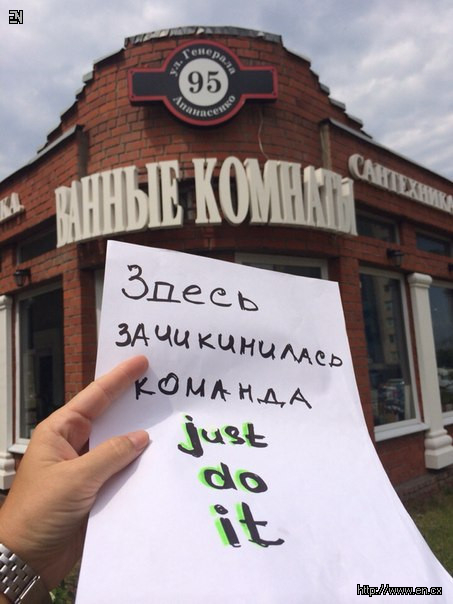 EN
ул. Генерала
95
Апанасенко
ВАННЫЕ КОМНАТЫ
САНТЕХНИКА
Здесь
зачикинилась
команда
just
do
it
http://www.en.cx